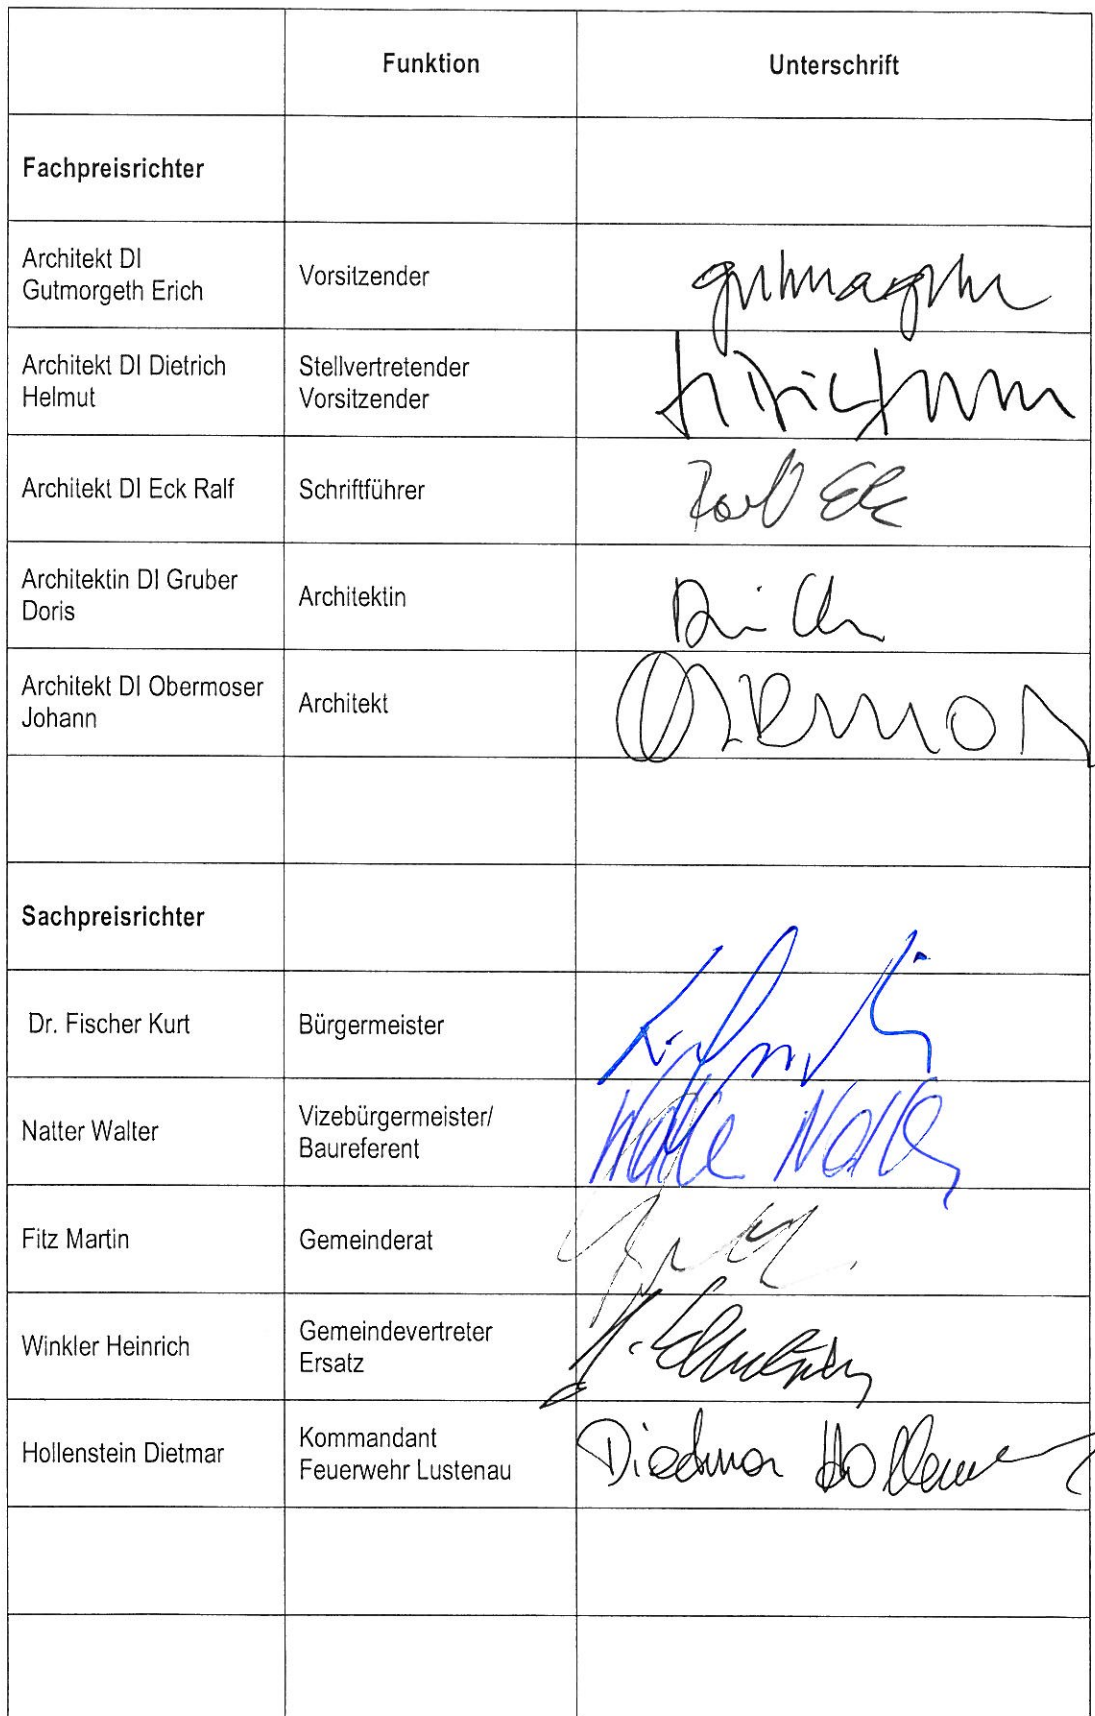 Funktion Unterschrift
Fachpreisrichter
Architekt DI
Gutmorgeth Erich
Vorsitzender
Architekt DI Dietrich
Helmut
Stellvertretender
Vorsitzender
Architekt DI Eck Ralf
Schriftführer
Ralf Eck
Architektin DI Gruber
Doris
Architektin
Architekt DI Obermoser
Johann
Architekt
Sachpreisrichter
Dr. Fischer Kurt
Bürgermeister
Natter Walter
Vizebürgermeister/
Baureferent
Walter Natter
Fitz Martin
Gemeinderat
Winkler Heinrich
Gemeindevertreter
Ersatz
Hollenstein Dietmar
Kommandant
Feuerwehr Lustenau
Dietmar Hollenstein